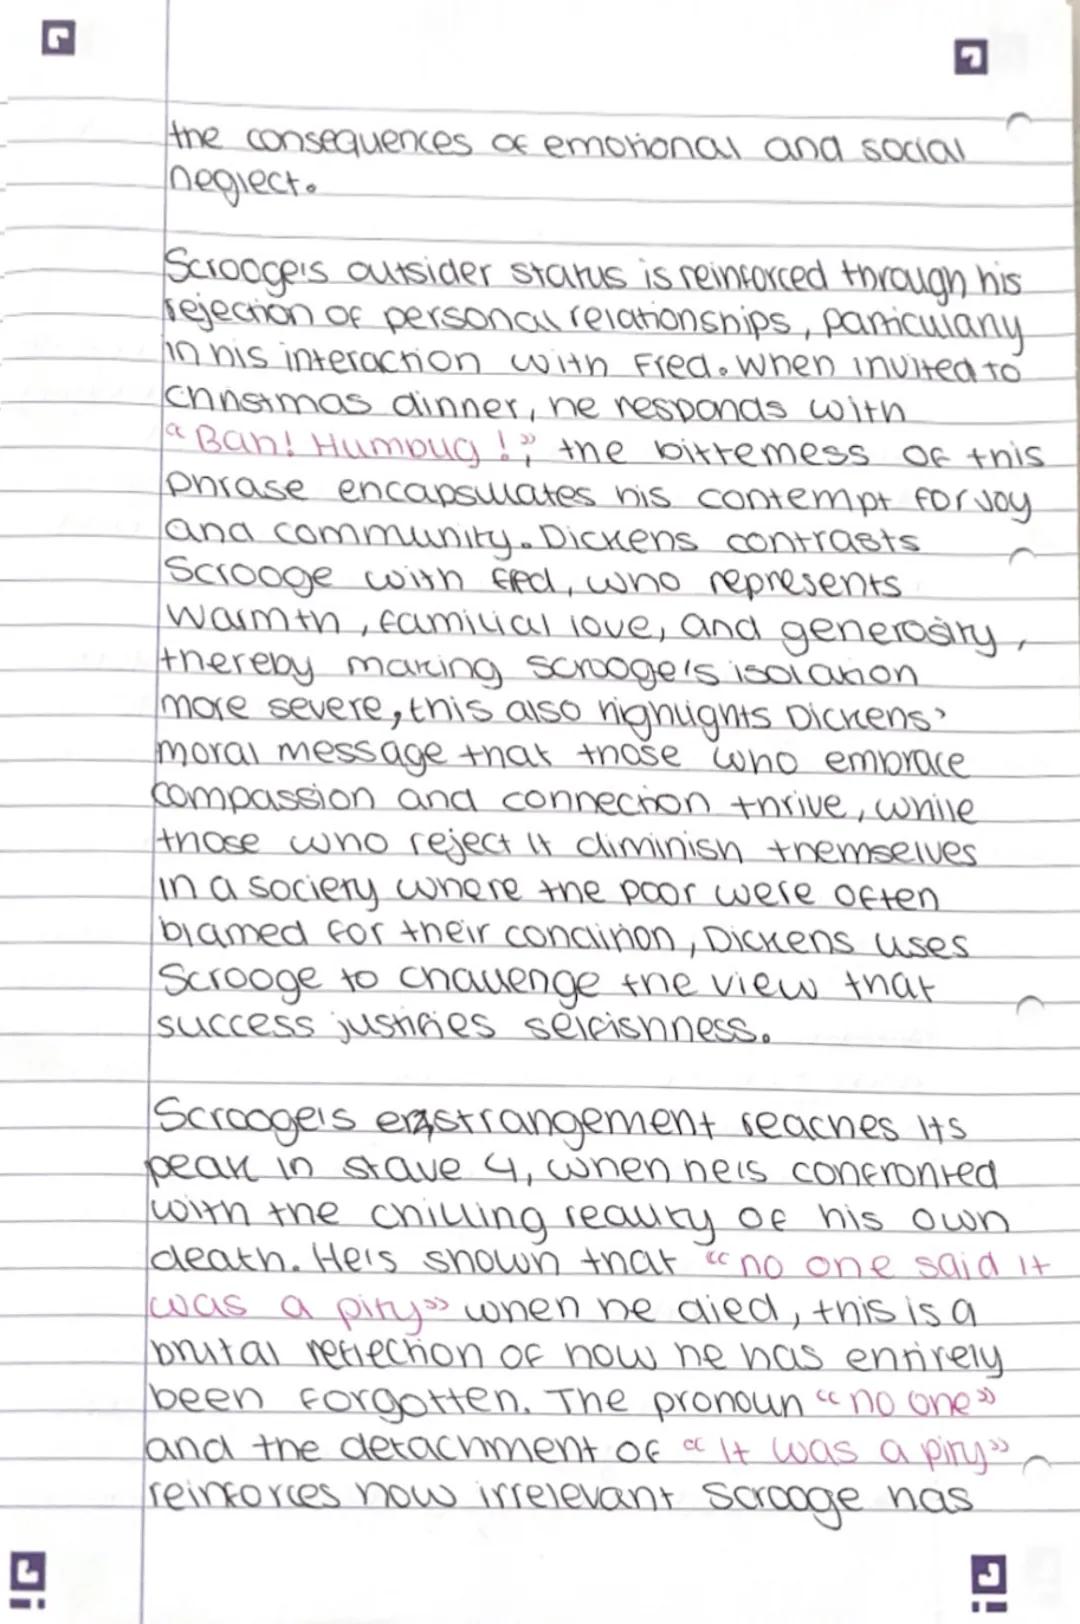 the consequences of emotional and social
neglect.
Scrooge's outsider status is reinforced through his
rejection of personal relationships, particularly
in his interaction with Fred. When invited to
Christmas dinner, he responds with
"Bah! Humbug!", the bitterness of this
phrase encapsulates his contempt for joy
and community. Dickens contrasts
Scrooge with Fred, who represents
warmth, familial love, and generosity,
thereby making Scrooge's isolation
more severe, this also highlights Dickens'
moral message that those who embrace
compassion and connection thrive, while
those who reject it diminish themselves
in a society where the poor were often
blamed for their condition, Dickens uses
Scrooge to challenge the view that
success justifies selfishness.
Scrooge's estrangement reaches its
peak in stave 4, when he is confronted
with the chilling reality of his own
death. He is shown that "no one said it
was a pity" when he died, this is a
brutal reflection of how he has entirely
been forgotten. The pronoun "no one"
and the detachment of "it was a pity"
reinforces how irrelevant Scrooge has